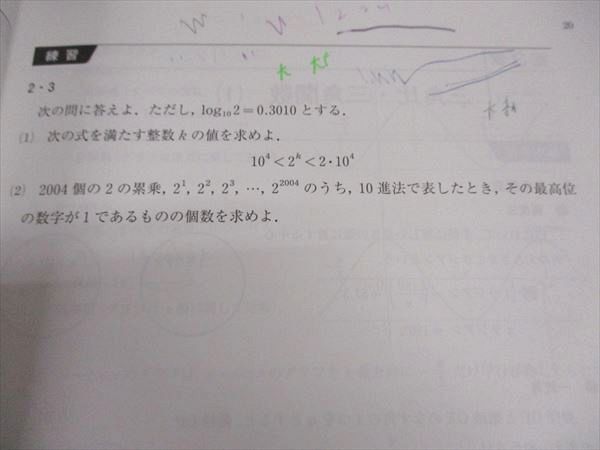 20
練習
2・3
次の問に答えよ．ただし，log₁₀2＝0.3010とする．
(1) 次の式を満たす整数kの値を求めよ．
10⁴＜2ᵏ＜2・10⁴
(2) 2004個の2の累乗，2¹，2²，2³，…，2²⁰⁰⁴のうち，10進法で表したとき，その最高位
の数字が1であるものの個数を求めよ．